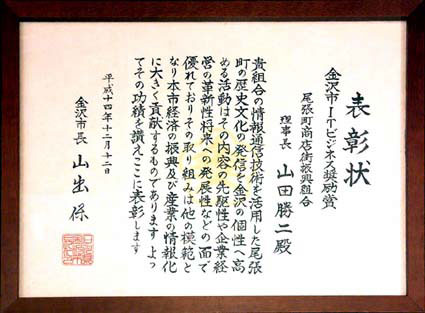 表彰状
金沢市ITビジネス奨励賞
尾張町商店街振興組合
理事長 山田勝二殿
貴組合の情報通信技術を活用した尾張
町の歴史文化の発信を金沢の個性へ高
める活動はその内容の先駆性や企業経
営の革新性将来への発展性などの面で
優れておりその取り組みは他の模範と
なり本市経済の振興及び産業の情報化
に大きく貢献するものであります よっ
てその功績を讃えここに表彰します
平成十四年十二月十二日
金沢市長 山出保